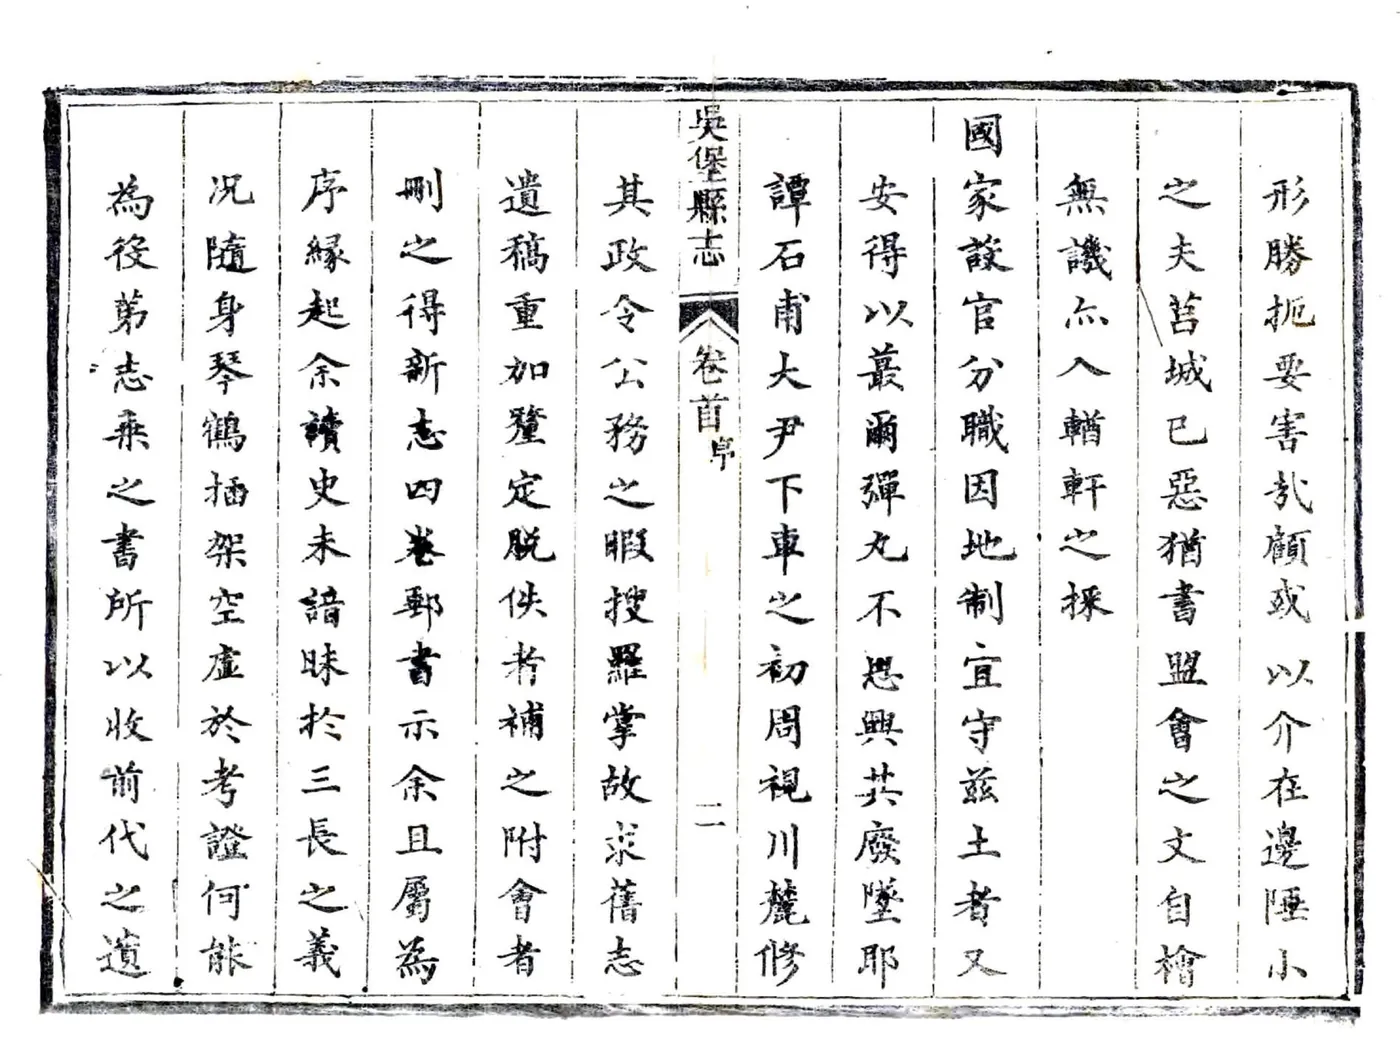 形勝扼要害哉顧或以介在邊陲小
之夫莒城已惡猶書盟會之文自檜
無譏亦入輶軒之採
國家設官分職因地制宜守茲土者又
安得以蕞爾彈丸不思興其廢墜耶
譚石甫大尹下車之初周視川麓修
吳堡縣志
卷首
序
二
其政令公務之暇搜羅掌故求舊志
遺稿重加釐定脫佚者補之附會者
刪之得新志四卷郵書示余且屬為
序緣起余讀史未諳昧於三長之義
况隨身琴鶴插架空虛於考證何能
為役第志乘之書所以收前代之遺